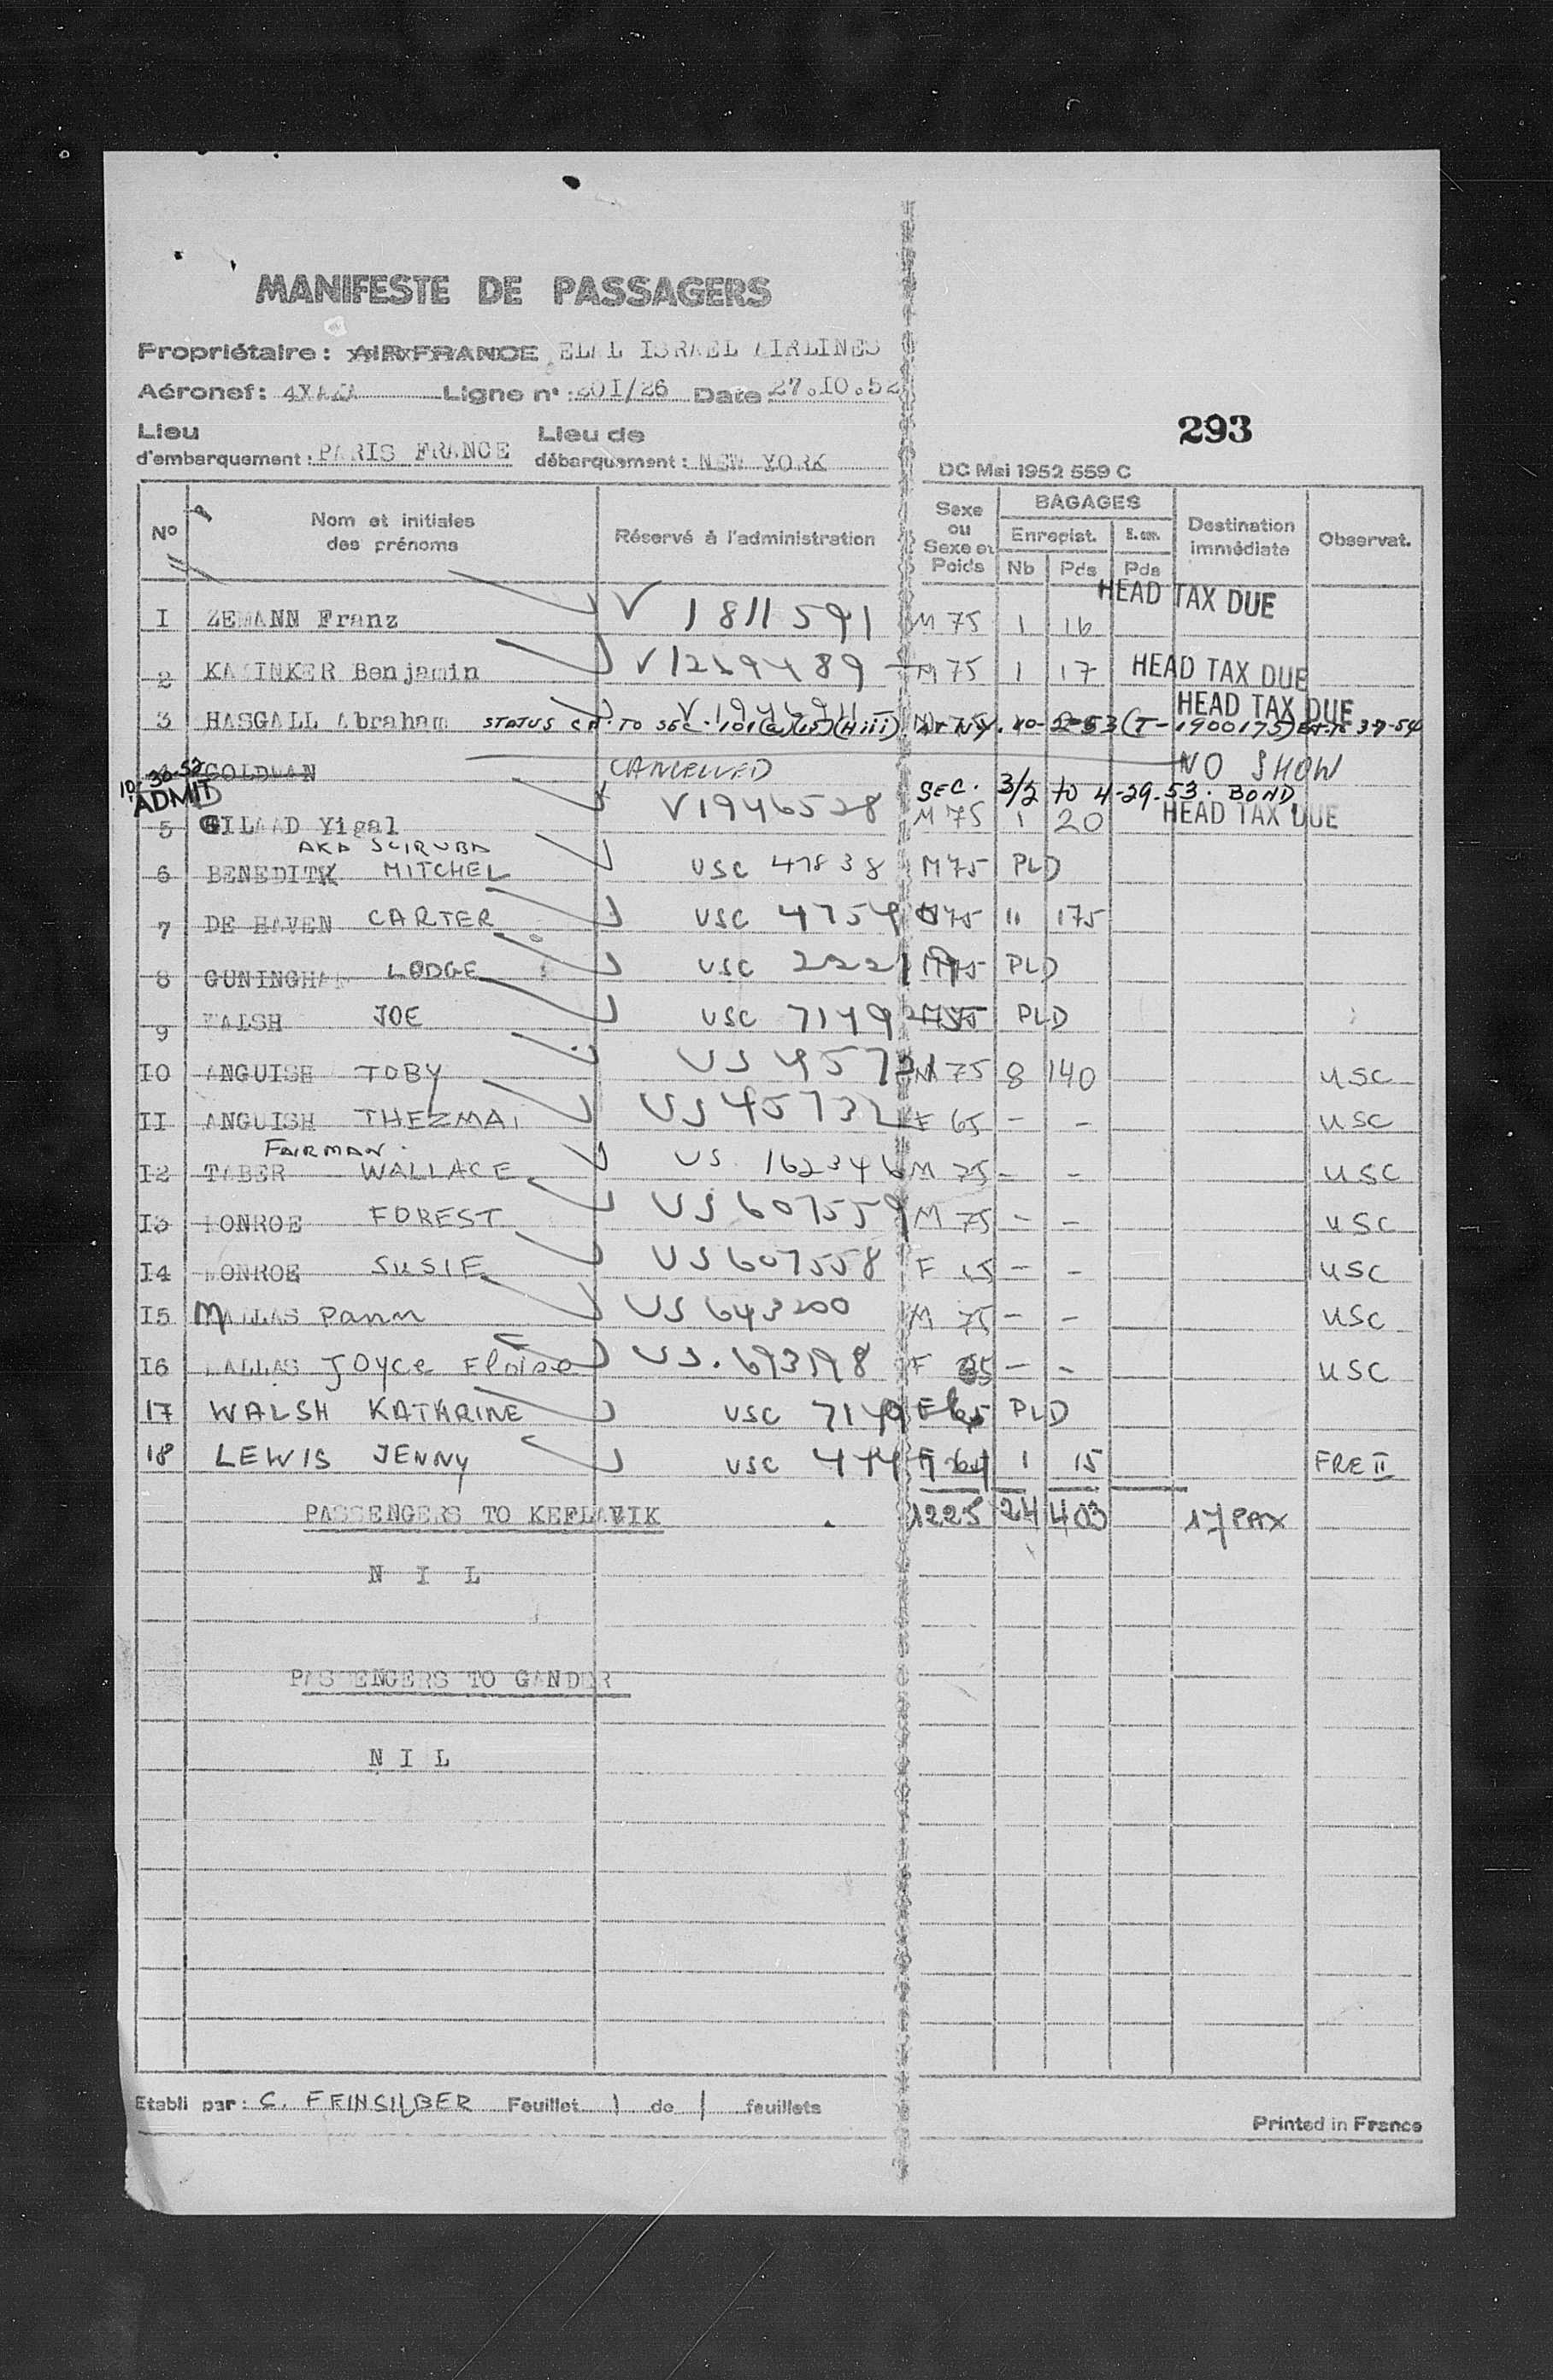 MANIFESTE DE PASSAGERS
Propriétaire: AIR FRANCE ELAL ISRAEL AIRLINES
Aéronef: Ligne n°: 201/26 Date: 27.10.52
293
Lieu d'embarquement: PARIS FRANCE Lieu de débarquement: NEW YORK
DC Mai 1952 559 C
N° Nom et initiales des prénoms Réservé à l'administration Sexe ou Sexe et Poids BAGAGES Enregist. Nb Pds Pds Destination immédiate Observat.
HEAD TAX DUE
I ZEMANN Franz V 1811591 M 75 1 16
2 Benjamin M 75 1 17 HEAD TAX DUE
HEAD TAX DUE
3 HASGALL Abraham STATUS CH. TO SEC. 101(a)(15)(Hiii) AT NY. 10-2-53 (T-1900175) 3-9-54
4 GOLDMAN CANCELLED NO SHOW
10-30-52
ADMITD SEC. 3/2 to 4-29-53. BOND
5 GILAAD Yigal V1946528 M 75 1 20 HEAD TAX DUE
AKA SCIRUBA
6 BENEDITK MITCHEL USC 47838 M 75 PLD
7 DE HAVEN CARTER USC 11 175
8 GUNINGHAM LODGE USC M 75 PLD
9 WALSH JOE USC PLD
I0 ANGUISH TOBY US 45731 M 75 8 140 USC
II ANGUISH US 45732 F 65 - - USC
FAIRMAN
I2 TABER WALLACE US. 162346 M 75 - - USC
I3 MONROE FOREST US 607559 M 75 - - USC
I4 MONROE SUSIE US 607558 F 15 - - USC
I5 MALLAS Pann US 643200 M 75 - - USC
I6 MALLAS Joyce Eloise US. F - - USC
17 WALSH KATHRINE USC PLD
18 LEWIS JENNY USC 1 15 FRE II
PASSENGERS TO KEFLAVIK 1225 24 403 17 PAX
N I L
PASSENGERS TO GANDER
N I L
Etabli par: C. FEINSILBER Feuillet 1 de 1 feuillets
Printed in France